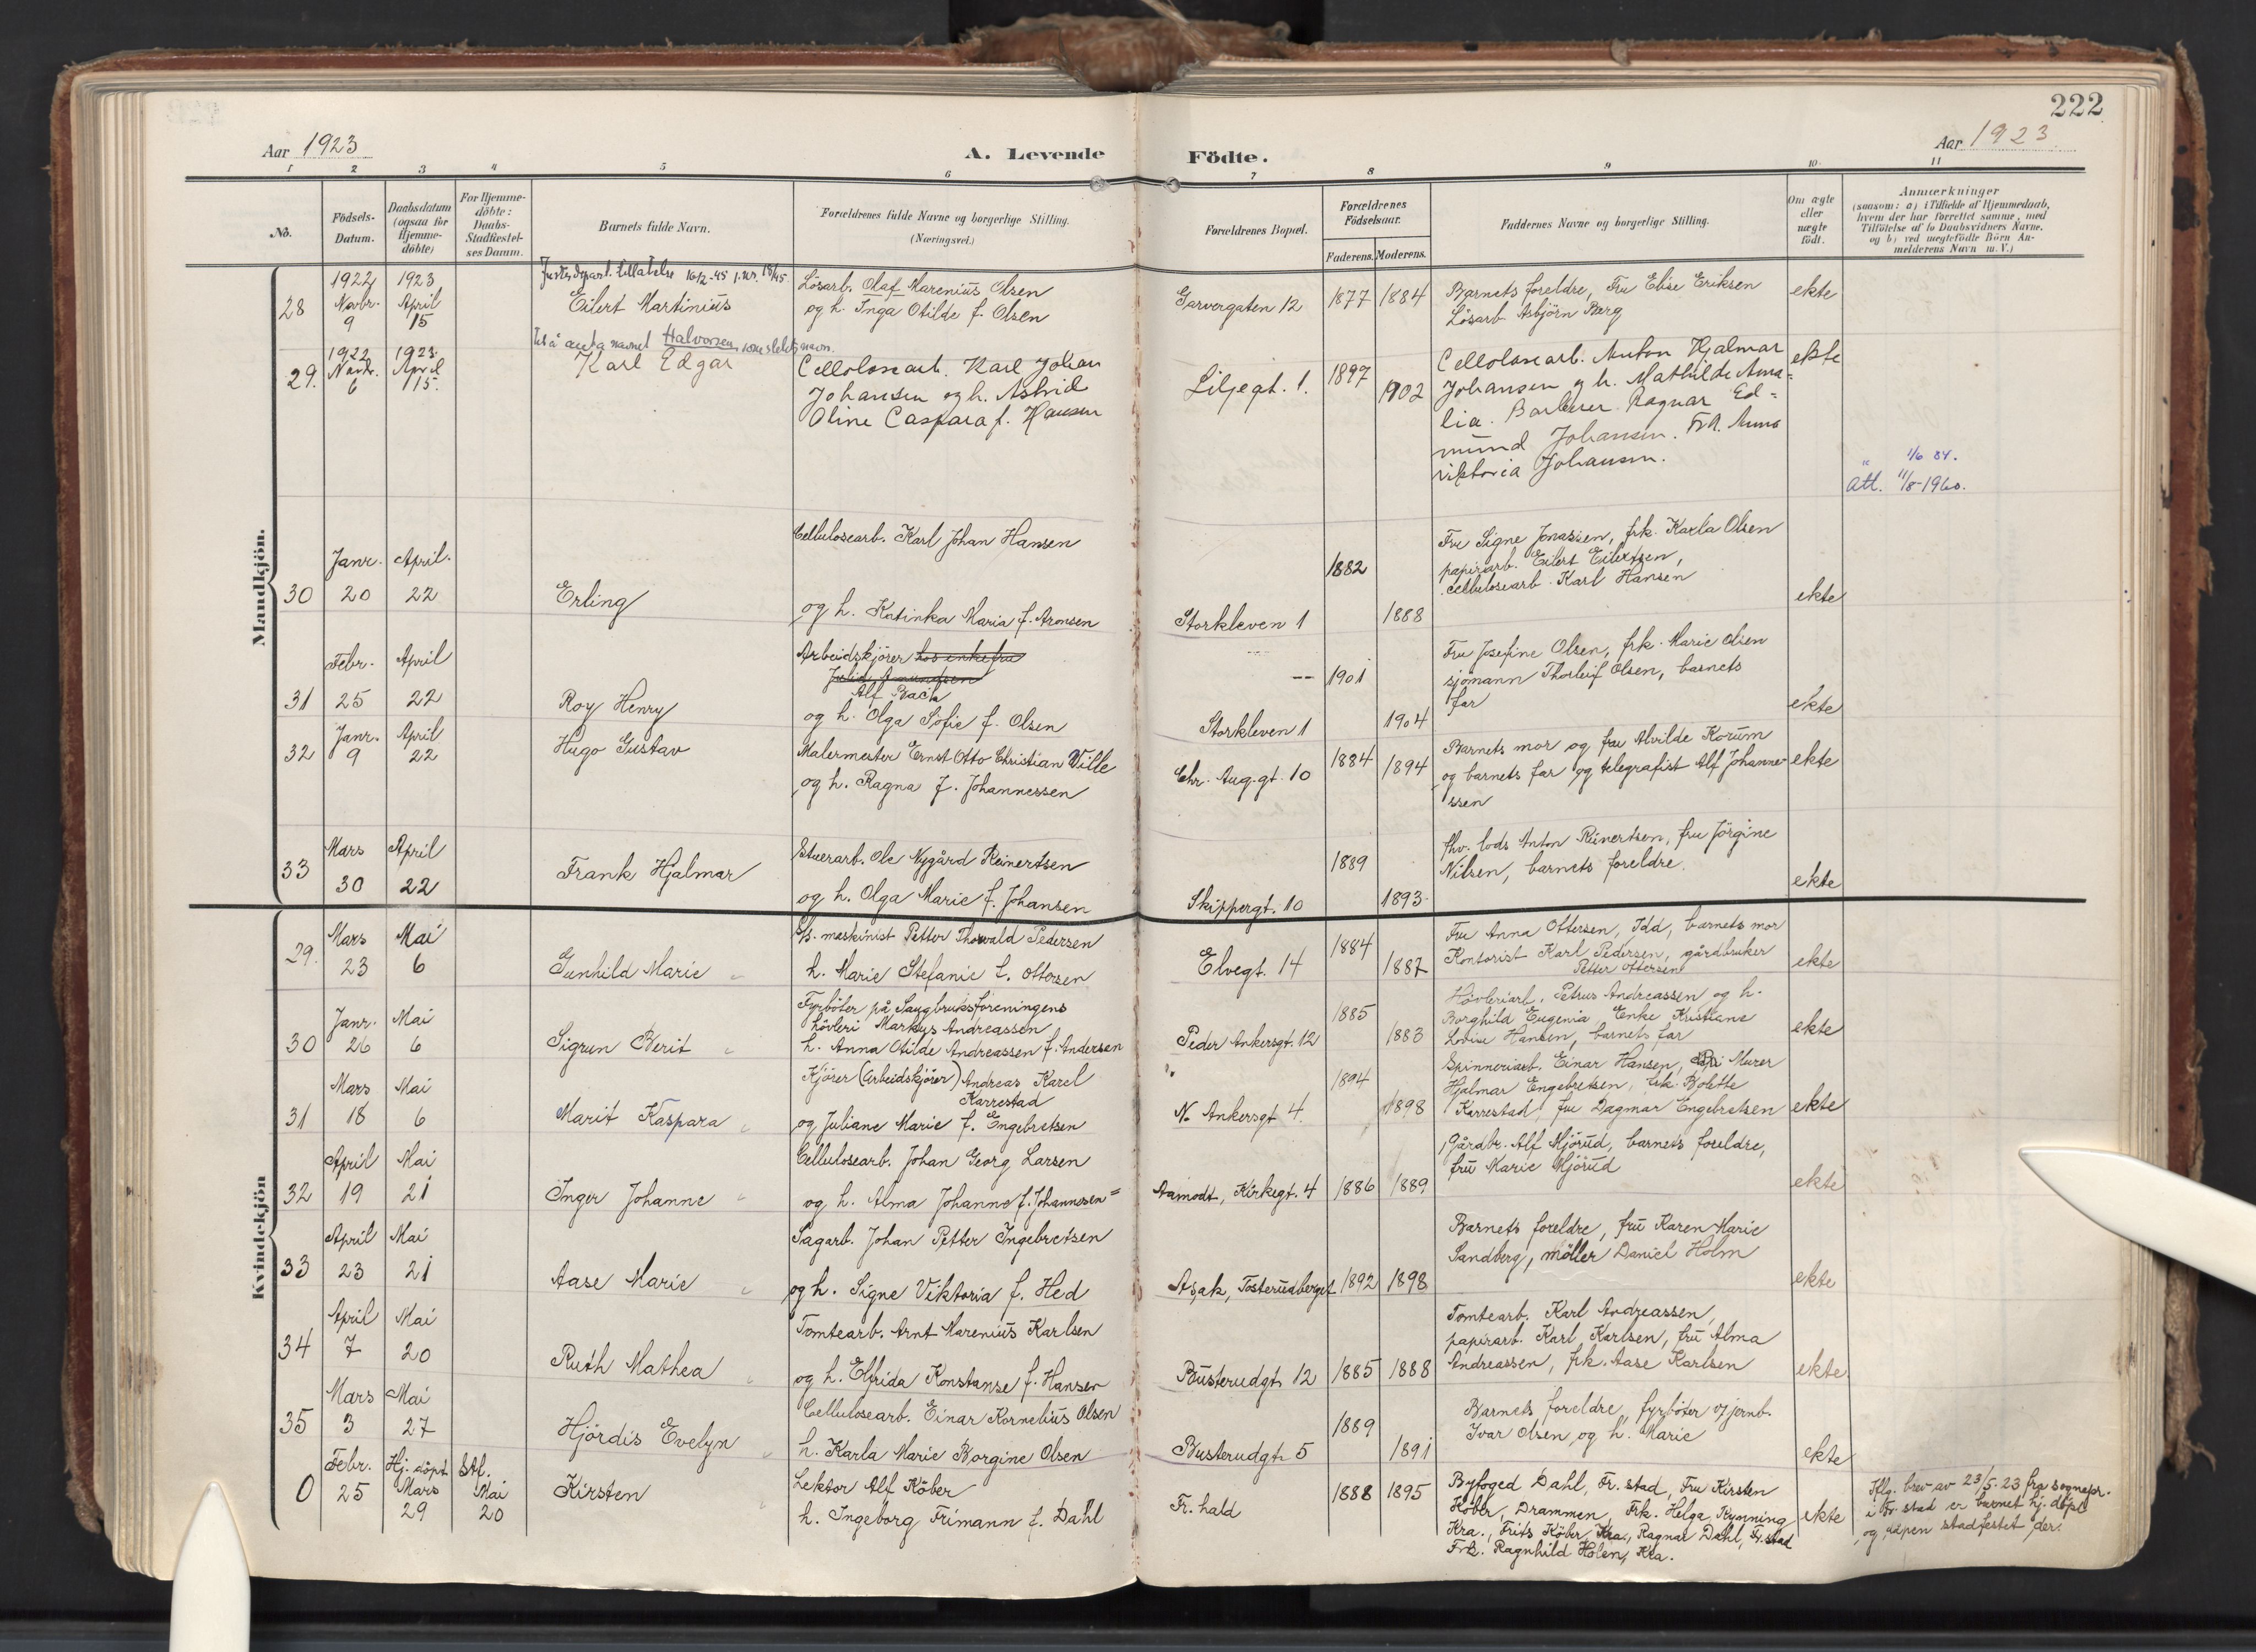 222
Aar 1923
A. Levende Födte.
Aar 1923
1 2 3 4 5 6 7 8 9 10 11
No.
Födsels-
Datum.
Daabsdatum
(ogsaa for
Hjemme-
döbte)
For Hjemme-
döbte:
Daabs-
Stadfæstel-
ses Datum.
Barnets fulde Navn.
Forældrenes fulde Navne og borgerlige Stilling.
(Næringsvei.)
Forældrenes Bopæl.
Forældrenes
Födselsaar.
Faderens. Moderens.
Faddernes Navne og borgerlige Stilling.
Om ægte
eller
uægte
födt.
Anmærkninger
(saasom: a) i Tilfælde af Hjemmedaab,
hvem der har forrettet samme, med
Tilföielse af to Daabsvidners Navne.
og b) ved uægtefödte Börn An-
melderens Navn m. V.)
Mandkjön.
28
1922
Novbr.
9
1923
April
15
Justisdepart. tillatelse 16/2-45 j.nr. 18/45
Eilert Martinius
til å anta navnet Halvorsen som slektsnavn.
Lösarb. Olaf Marenius Olsen
og h. Inga Otilde f. Olsen
Garvergaten 12
1877 1884
Barnets foreldre, Fru Elise Eriksen
Lösarb. Asbjörn Berg
ekte
29.
1922
Novbr.
6
1923
April
15.
Karl Edgar
Cellolosearb. Karl Johan
Johansen og h. Astrid
Oline Caspara f. Hansen
Liljegt. 1.
1897 1902
Cellolosearb. Anton Hjalmar
Johansen og h. Mathilde Ama=
lia. Barberer Ragnar Ed=
mund Johansen. Frk. Anna
Viktoria Johansen.
ekte
" 1/6 84.
Att. 11/8-1960.
30
Janr.
20
April
22
Erling
Cellulosearb. Karl Johan Hansen
og h. Katinka Maria f. Aronsen
Storkleven 1
1882 1888
Fru Signe Jonassen, frk. Karla Olsen
papirarb. Eilert Eilertsen,
cellulosearb. Karl Hansen
ekte
31
Febr.
25
April
22
Roy Henry
Arbeidskjörer hos enkefru
Julie Amundsen
Alf Bach
og h. Olga Sofie f. Olsen
Storkleven 1
1901 1904
Fru Josefine Olsen, frk. Marie Olsen
sjömann Thorleif Olsen, barnets
far
ekte
32
Janr.
9
April
22
Hugo Gustav
Malermester Ernst Otto Christian Ville
og h. Ragna f. Johannessen
Chr. Aug.gt. 10
1884 1894
Barnets mor og fru Alvilde Korum
og barnets far og telegrafist Alf Johanne-
ssen
ekte
33
Mars
30
April
22
Frank Hjalmar
Stuerarb. Ole Nygård Reinertsen
og h. Olga Marie f. Johansen
Skippergt. 10
1889 1893
fhv. lods Anton Reinertsen, fru Jörgine
Nilsen, barnets foreldre.
ekte
Kvindekjön
29.
Mars
23
Mai
6
Gunhild Marie
S/s. maskinist Petter Thorvald Pedersen
h. Marie Stefanie f. Ottersen
Elvegt. 14
1884 1887
Fru Anna Ottersen, Idd, barnets mor
Kontorist Karl Pedersen, gårdbruker
Petter Ottersen
ekte
30
Janr.
26
Mai
6
Sigrun Berit
Fyrböter på Saugbruksforeningens
hövleri Markus Andreassen
h. Anna Otilde Andreassen f. Andersen
Peder Ankersgt. 12
1885 1883
Hövleriarb. Petrus Andreassen og h.
Borghild Eugenia, Enke Kristiane
Lovise Hansen, barnets far
ekte
31
Mars
18
Mai
6
Marit Kaspara
Kjörer (Arbeidskjörer) Andreas Karel
Karrestad
og Juliane Marie f. Engebretsen
N. Ankersgt 4.
1894 1898
Spinneriarb. Einar Hansen, Murer
Hjalmar Engebretsen, frk. Bolette
Karrestad, fru Dagmar Engebretsen
ekte
32
April
19
Mai
21
Inger Johanne
Cellulosearb. Johan Georg Larsen
og h. Alma Johanne f. Johannesen=
Aamodt, Kirkegt. 4
1886 1889
Gårdbr. Alf Mjörud, barnets foreldre,
fru Marie Mjörud
ekte
33
April
23
Mai
21
Aase Marie
Sagarb. Johan Petter Ingebretsen
og h. Signe Viktoria f. Hed
Asak, Tosterudberget
1892 1898
Barnets foreldre, fru Karen Marie
Sandberg, möller Daniel Holm
ekte
34
April
7
Mai
20
Ruth Mathea
Tomtearb. Arnt Marenius Karlsen
og h. Elfrida Konstanse f. Hansen
Busterudgt. 12
1885 1888
Tomtearb. Karl Andreassen,
papirarb. Karl Karlsen, fru Alma
Andreassen, frk. Aase Karlsen
ekte
35
Mars
3
Mai
27
Hjördis Evelyn
Cellulosearb. Einar Kornelius Olsen
h. Karla Marie Borgine Olsen
Busterudgt. 5
1889 1891
Barnets foreldre, fyrböter v/jernb.
Ivar Olsen og h. Marie
ekte
0
Febr.
25
Hj. döpt
Mars
29
Stf.
Mai
20
Kirsten
Lektor Alf Köber
h. Ingeborg Frimann f. Dahl
Fr. hald
1888 1895
Byfoged Dahl, Fr. stad, Fru Kirsten
Köber, Drammen, Frk. Helga Rynning
Kra., Frits Köber, Kra., Ragnar Dahl, Fr. stad
Frk. Ragnhild Holen, Kra.
ekte
Iflg. brev av 23/5-23 fra sognepr.
i Fr. stad er barnet hj. döpt
og dåpen stadfestet der.